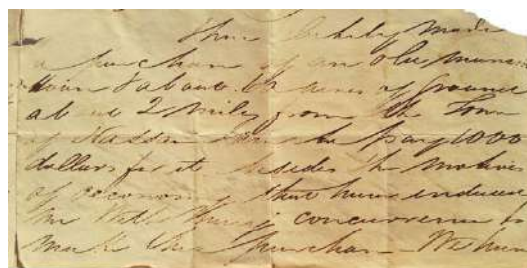 I have lately made
a purchase of an old mansion
about 10 acres of ground
about 2 miles from the Town
of Nassau pay 1000
dollars for it besides the motives
of oeconomy that have induced
me with concurrence to
make this purchase – We have